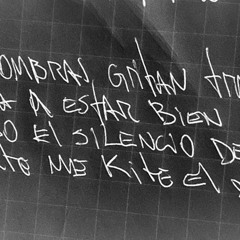 OMBRAS GRITAN
A A ESTAR BIEN
O EL SILENCIO DE
ME KITE EL